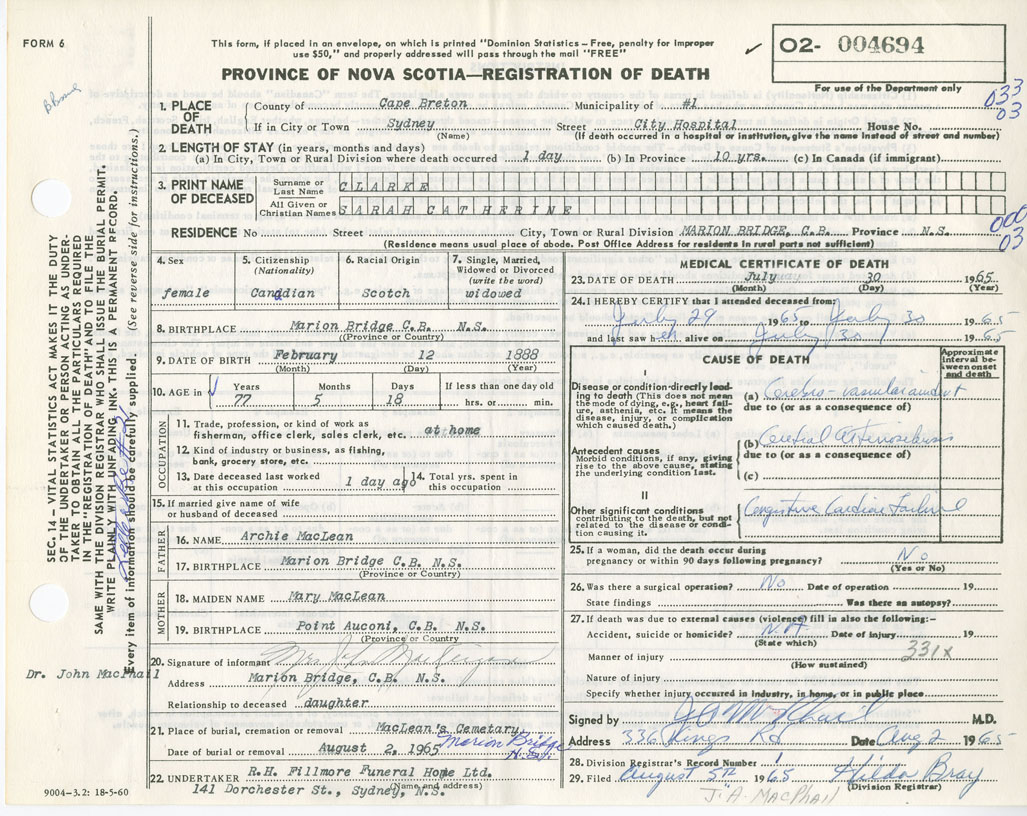 FORM 6
This form, if placed in an envelope, on which is printed "Dominion Statistics – Free, penalty for improper
use $50," and properly addressed will pass through the mail "FREE"
✓ O2- 004694
PROVINCE OF NOVA SCOTIA—REGISTRATION OF DEATH
For use of the Department only
033
03
1. PLACE OF DEATH
County of Cape Breton Municipality of #1
If in City or Town Sydney (Name) Street City Hospital House No.
(If death occurred in a hospital or institution, give the name instead of street and number)
2. LENGTH OF STAY (in years, months and days)
(a) In City, Town or Rural Division where death occurred 1 day (b) In Province 10 yrs. (c) In Canada (if immigrant)
3. PRINT NAME OF DECEASED
Surname or Last Name CLARKE
All Given or Christian Names SARAH CATHERINE
000
03
RESIDENCE No Street City, Town or Rural Division MARION BRIDGE, C.B. Province N.S.
(Residence means usual place of abode. Post Office Address for residents in rural parts not sufficient)
4. Sex female
5. Citizenship (Nationality) Canadian
6. Racial Origin Scotch
7. Single, Married, Widowed or Divorced (write the word) widowed
8. BIRTHPLACE Marion Bridge C.B. N.S.
(Province or Country)
9. DATE OF BIRTH February 12 1888
(Month) (Day) (Year)
10. AGE in Years Months Days If less than one day old
77 5 18 hrs. or min.
OCCUPATION
11. Trade, profession, or kind of work as
fisherman, office clerk, sales clerk, etc. at home
12. Kind of industry or business, as fishing,
bank, grocery store, etc.
13. Date deceased last worked at this occupation 1 day ago
14. Total yrs. spent in this occupation
15. If married give name of wife
or husband of deceased
FATHER
16. NAME Archie MacLean
17. BIRTHPLACE Marion Bridge C.B. N.S.
(Province or Country)
MOTHER
18. MAIDEN NAME Mary MacLean
19. BIRTHPLACE Point Auconi, C.B. N.S.
(Province or Country
20. Signature of informant Mrs
Address Marion Bridge, C.B. N.S.
Relationship to deceased daughter
21. Place of burial, cremation or removal MacLean's Cemetary,
Marion Bridge
Date of burial or removal August 2, 1965
22. UNDERTAKER R.H. Fillmore Funeral Home Ltd.
(Name and address)
141 Dorchester St., Sydney, N.S.
9004-3.2: 18-5-60
MEDICAL CERTIFICATE OF DEATH
23. DATE OF DEATH July 30 1965
(Month) (Day) (Year)
24. I HEREBY CERTIFY that I attended deceased from:
July 29 1965 to July 30 1965
and last saw h er alive on July 30 1965
CAUSE OF DEATH
Approximate interval between onset and death
I
Disease or condition directly leading to death (This does not mean the mode of dying, e.g., heart failure, asthenia, etc. It means the disease, injury, or complication which caused death.)
(a) Cerebro-vascular accident
due to (or as a consequence of)
Antecedent causes
Morbid conditions, if any, giving rise to the above cause, stating the underlying condition last.
(b) Cerebral Arteriosclerosis
due to (or as a consequence of)
(c)
II
Other significant conditions
contributing to the death, but not related to the disease or condition causing it.
Congestive Cardiac Failure
25. If a woman, did the death occur during
pregnancy or within 90 days following pregnancy? No
(Yes or No)
26. Was there a surgical operation? No Date of operation 19
State findings Was there an autopsy?
27. If death was due to external causes (violence) fill in also the following:–
Accident, suicide or homicide? N.A. Date of injury 19
(State which)
Manner of injury 331x
(How sustained)
Nature of injury
Specify whether injury occurred in industry, in home, or in public place
Signed by J A McPhail M.D.
Address 336 Kings Rd Date Aug 2 1965
28. Division Registrar's Record Number
29. Filed August 5th 1965 Hilda Bray
(Division Registrar)
J. A. MACPHAIL
SEC. 14 – VITAL STATISTICS ACT MAKES IT THE DUTY
OF THE UNDERTAKER OR PERSON ACTING AS UNDER-
TAKER TO OBTAIN ALL THE PARTICULARS REQUIRED
IN THE "REGISTRATION OF DEATH" AND TO FILE THE
SAME WITH THE DIVISION REGISTRAR WHO SHALL ISSUE THE BURIAL PERMIT.
WRITE PLAINLY WITH UNFADING INK. THIS IS A PERMANENT RECORD.
Every item of information should be carefully supplied. (See reverse side for instructions.)
Dr. John MacPhail